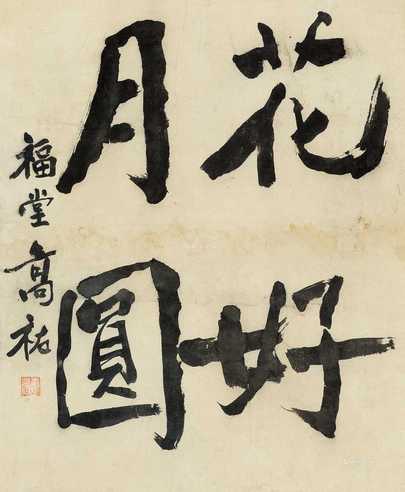 花好
月圓
福堂高祐